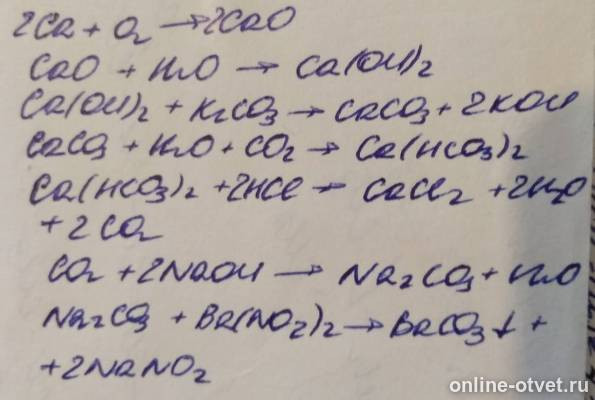 2Ca + O₂ → 2CaO
CaO + H₂O → Ca(OH)₂
Ca(OH)₂ + K₂CO₃ → CaCO₃ + 2KOH
CaCO₃ + H₂O + CO₂ → Ca(HCO₃)₂
Ca(HCO₃)₂ + 2HCl → CaCl₂ + 2H₂O
+ 2CO₂
CO₂ + 2NaOH → Na₂CO₃ + H₂O
Na₂CO₃ + Ba(NO₂)₂ → BaCO₃↓ +
+ 2NaNO₂
online-otvet.ru